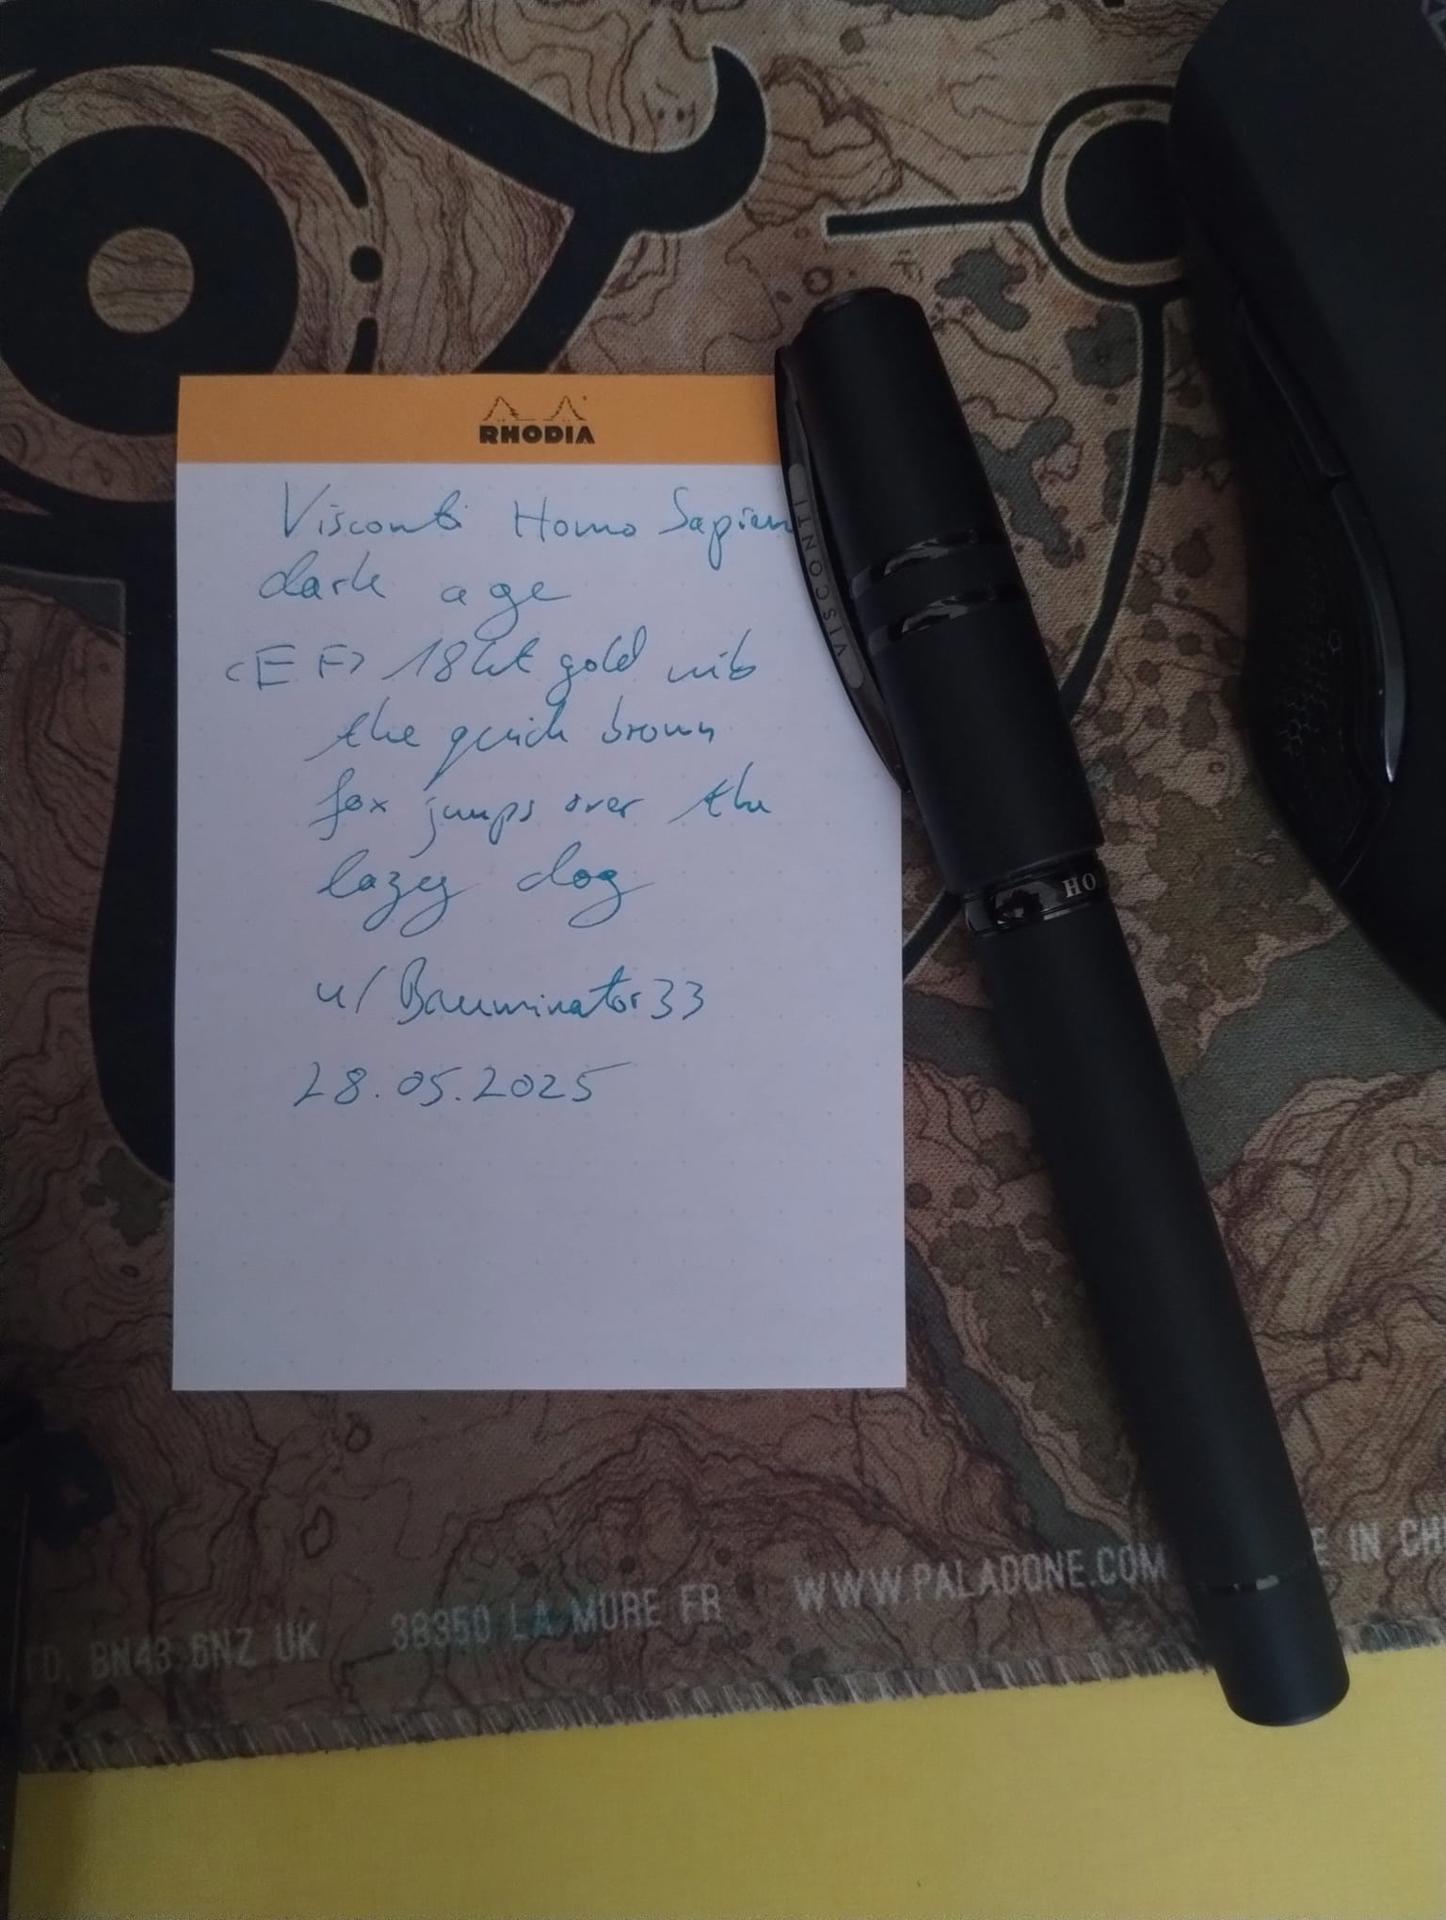 RHODIA
Visconti Homo Sapien
dark age
<EF> 18kt gold nib
the quick brown
fox jumps over the
lazy dog
u/Bauminator33
28.05.2025
VISCONTI
HO
TD. BN43 6NZ UK 38350 LA MURE FR WWW.PALADONE.COM E IN CH